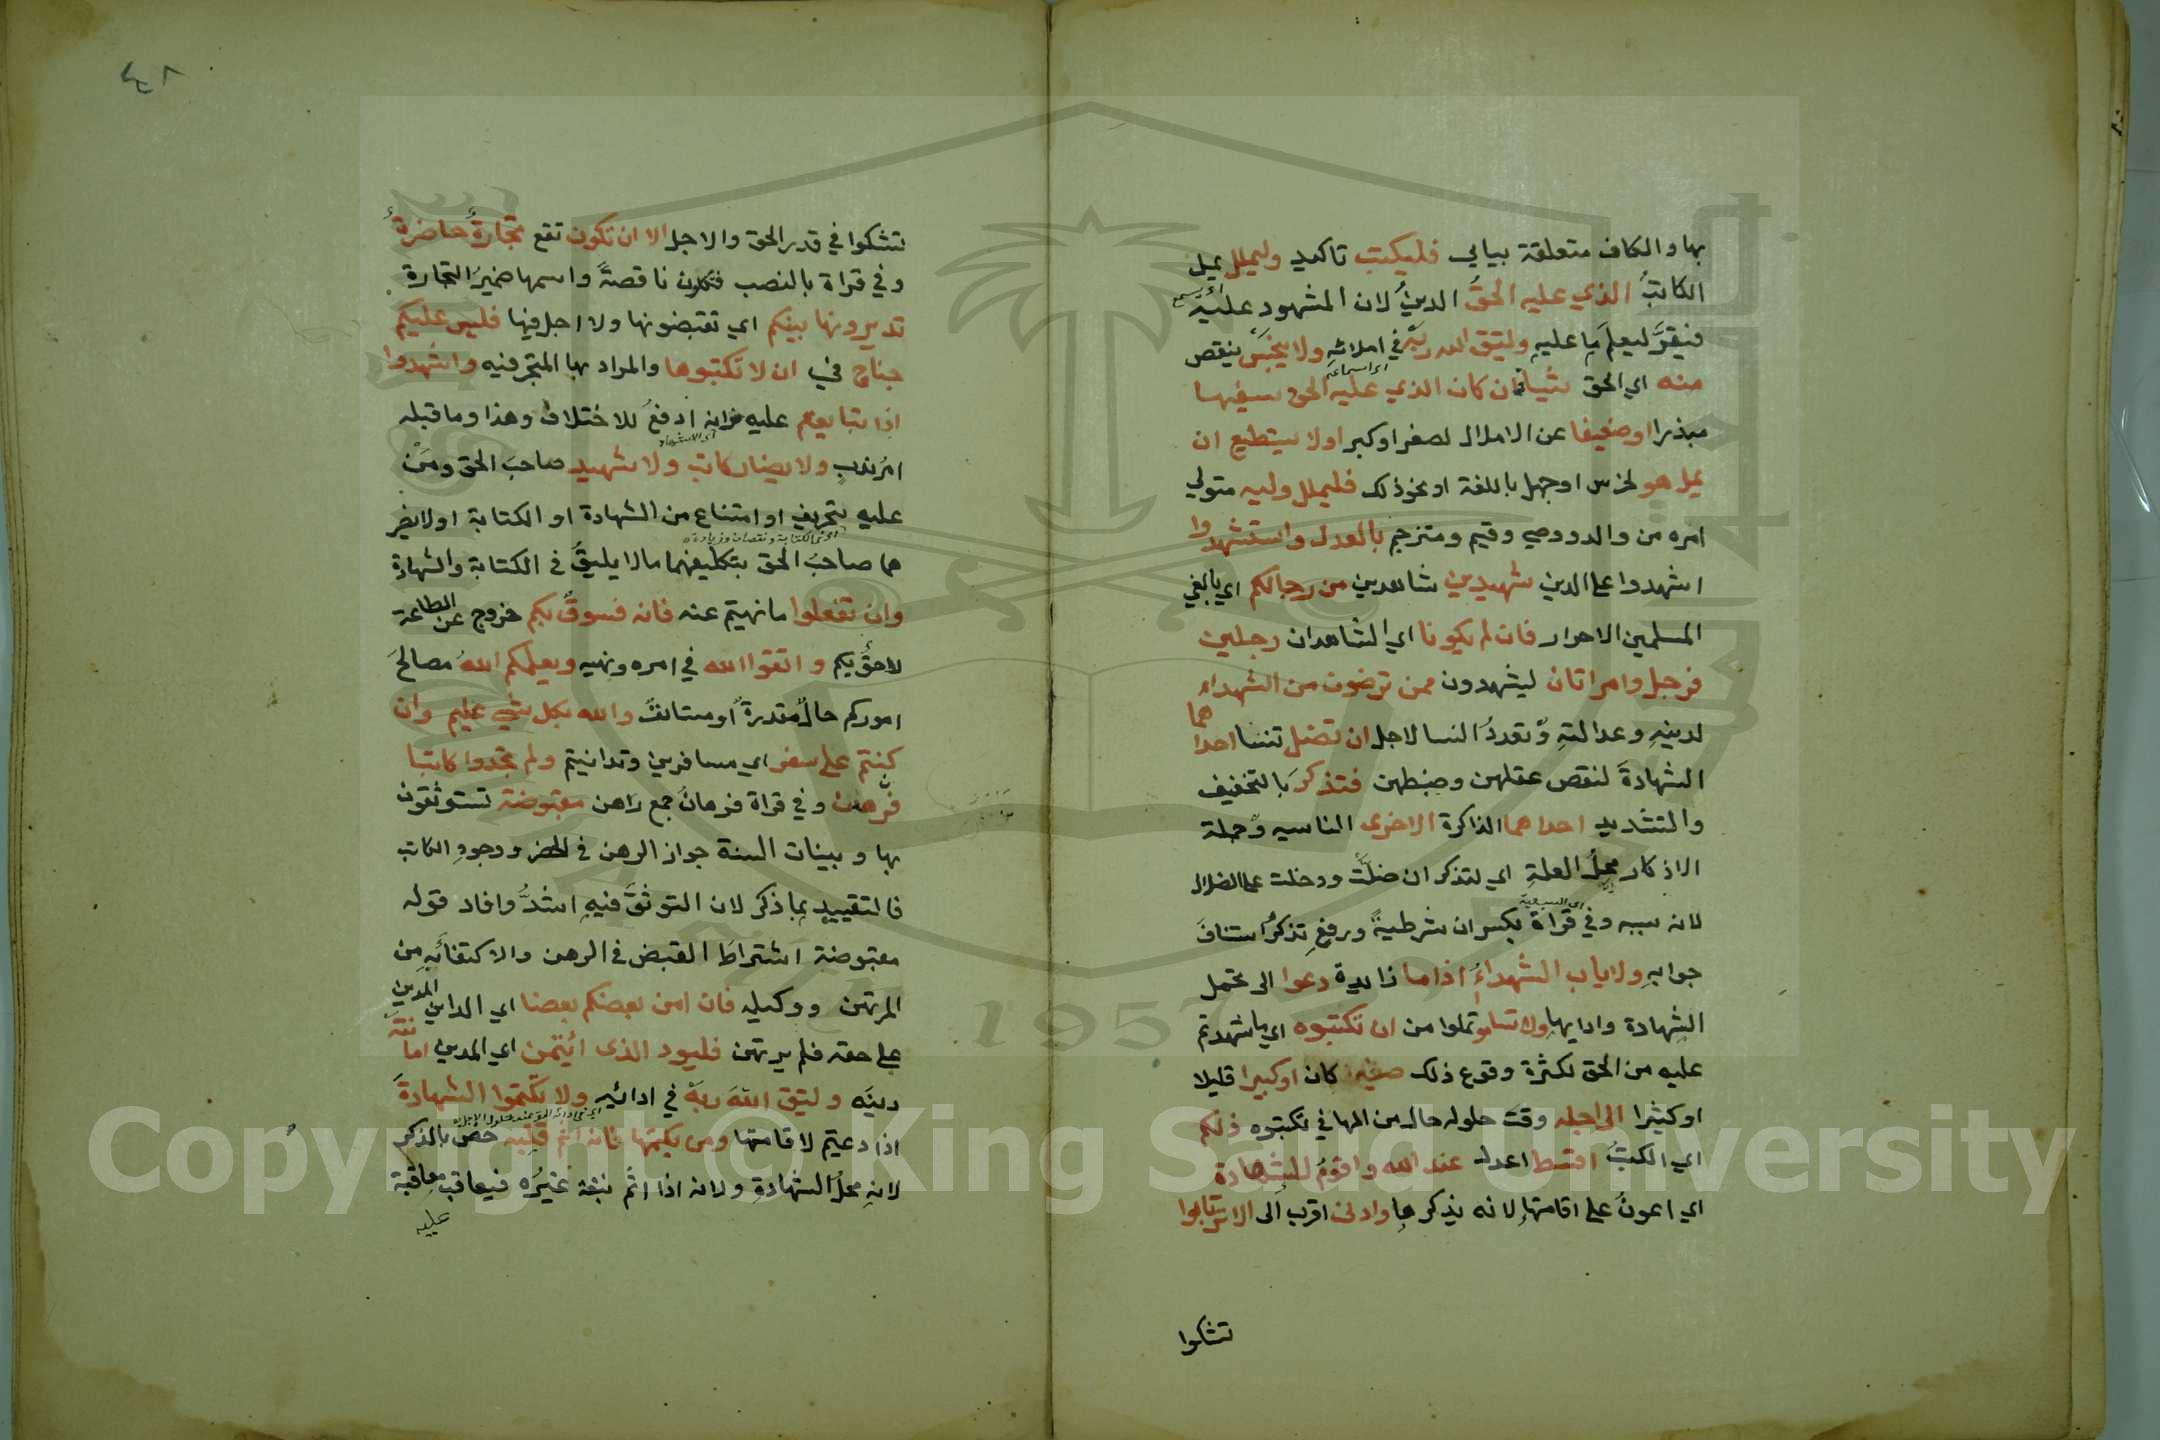 بها والكاف متعلقة بيابى فليكتب تاكيد وليملل يمل
الكاتبُ الذي عليه الحقُّ الدينُ لان المشهود عليه
فيقرَّ ليعلمَ ما عليهِ وليتق الله ربَّه في املائهِ ولا يبخسْ ينقص
منه اي الحق شيئا فان كان الذي عليه الحق سفيها
مبذرا اوضعيفا عن الاملال لصغر اوكبر اولا يستطيع ان
يمل هو لخرس اوجهل باللغة اونحوذلك فليملل وليه متولي
امره من والد ووصي وقيم ومترجم بالعدل واستشهدوا
اشهدوا على الدين شهيدين شاهدين من رجالكم اي بالغي
المسلمين الاحرار فان لم يكونا اي الشاهدان رجلين
فرجل وامراتان ليشهدون ممن ترضون من الشهداء
لدينهِ وعدالتهِ وتعددُ النسا لاجل ان تضل تنسا احداهما
الشهادةَ لنقص عقلهن وضبطهن فتذكرَ بالتخفيف
والتشديد احداهما الذاكرة الاخرى الناسيه وجملة
الاذكار محلُّ العلةِ اي لتذكر ان ضلَّت ودخلت على الضلال
لانه سببه وفي قراة بكسر ان شرطيةً ورفعِ تذكرُ استئنافَ
اي السببية
جوابه ولا ياب الشهداءُ اذا ما زايدة دعوا الى تحمل
الشهادة وادايها ولا تسامو تملوا من ان تكتبوه اي ما شهدتم
عليه من الحق لكثرة وقوع ذلك صغيرا كان اوكبيرا قليلا
اوكثيرا الى اجله وقت حلوله حال من الها في تكتبوه ذلكم
اي الكتبُ اقسط اعدل عند الله واقومُ للشهادة
اي اعونُ على اقامتهاِ لانه يذكرها وادنى اقرب الى الا ترتابوا
تشكوا
٤٨
تشكوا في قدر الحق والاجل الا ان تكون تقع تجارةٌ حاضرةٌ
وفي قراة بالنصب فتكون ناقصةً واسمها ضميرُ التجارة
تديرونها بينكم اي تقبضونها ولا اجل فيها فليس عليكم
جناح في ان لا تكتبوها والمراد بها المتجر فيه واشهدوا
اذا تبايعتم عليه فانه ادفعُ للاختلاف وهذا وما قبله
اي الاشهاد
امرُ ندبٍ ولا يضار كاتب ولا شهيد صاحبَ الحق ومَنْ
عليه بتحريف او امتناع من الشهادة او الكتابة اولا يضر
هما صاحبُ الحق بتكليفهما مالا يليقُ في الكتابة والشهادة
وان تفعلوا ما نهيتم عنه فانه فسوقٌ بكم خروج عن الطاعة
لاحقٌ بكم واتقوا الله في امره ونهيه ويعلمكم اللهُ مصالحَ
اموركم حالٌ مقدرةٌ اومستانفٌ والله بكل شي عليم وان
كنتم على سفر اي مسافرين وتداينتم ولم تجدوا كاتبا
فرهن وفي قراة فرهانٌ جمع رَاهن مقبوضة تستوثقون
بها وبينات السنة جواز الرهن في الحضر ووجودِ الكاتب
فالتقييد بما ذكر لان التوثقَ فيهِ اشدُّ وافاد قوله
مقبوضة اشتراطَ القبض في الرهن والاكتفاَء به من
المرتهن ووكيله فان امن بعضكم بعضا اي الداين المدين
على حقه فلم يرتهن فليود الذى ائتمن اي المدين امانته
دينَه وليتق اللهَ ربهْ في ادائهِ ولا تكتموا الشهادةَ
اذا دعيتم لاقامتها ومن يكتمها فانه اثم قلبُه خص بالذكر
لانه محلُّ الشهادةِ ولانه اذا اثم تبعه غيرُه فيعاقب معاقبة
عليه